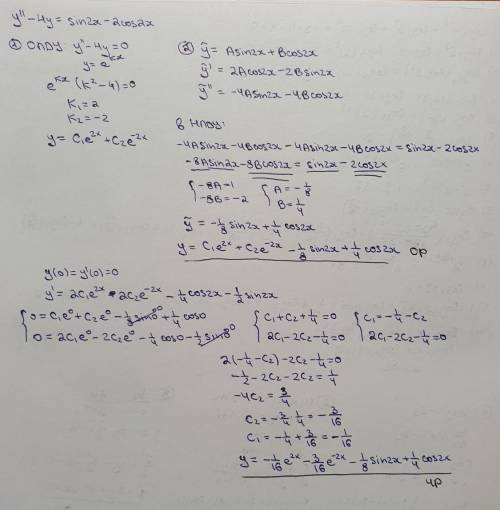 y'' - 4y = sin2x - 2cos2x
① ОЛДУ: y'' - 4y = 0
y = e^{kx}
e^{kx}(k² - 4) = 0
k₁ = 2
k₂ = -2
y = C₁e^{2x} + C₂e^{-2x}
② ỹ = Asin2x + Bcos2x
ỹ' = 2Acos2x - 2Bsin2x
ỹ'' = -4Asin2x - 4Bcos2x
в НЛДУ:
-4Asin2x - 4Bcos2x - 4Asin2x - 4Bcos2x = sin2x - 2cos2x
-8Asin2x - 8Bcos2x = sin2x - 2cos2x
{-8A = 1 {A = -1/8
-8B = -2 B = 1/4
ỹ = -1/8 sin2x + 1/4 cos2x
y = C₁e^{2x} + C₂e^{-2x} - 1/8 sin2x + 1/4 cos2x ОР
y(0) = y'(0) = 0
y' = 2C₁e^{2x} - 2C₂e^{-2x} - 1/4 cos2x - 1/2 sin2x
{0 = C₁e⁰ + C₂e⁰ - 1/8 sin0 + 1/4 cos0 {C₁ + C₂ + 1/4 = 0 {C₁ = -1/4 - C₂
0 = 2C₁e⁰ - 2C₂e⁰ - 1/4 cos0 - 1/2 sin0 2C₁ - 2C₂ - 1/4 = 0 2C₁ - 2C₂ - 1/4 = 0
2(-1/4 - C₂) - 2C₂ - 1/4 = 0
-1/2 - 2C₂ - 2C₂ = 1/4
-4C₂ = 3/4
C₂ = -3/4 · 1/4 = -3/16
C₁ = -1/4 + 3/16 = -1/16
y = -1/16 e^{2x} - 3/16 e^{-2x} - 1/8 sin2x + 1/4 cos2x
ЧР